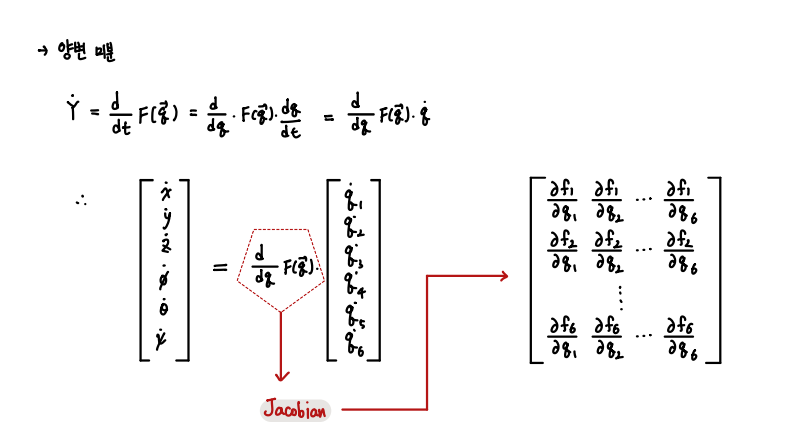 → 양변 미분
Ẏ = d/dt F(q⃗) = d/dq · F(q⃗) · dq/dt = d/dq F(q⃗) · q̇
∴ [ẋ ẏ ż φ̇ θ̇ ψ̇] = d/dq F(q⃗) · [q̇₁ q̇₂ q̇₃ q̇₄ q̇₅ q̇₆]
[∂f₁/∂q₁ ∂f₁/∂q₂ ⋯ ∂f₁/∂q₆
∂f₂/∂q₁ ∂f₂/∂q₂ ⋯ ∂f₂/∂q₆
⋮
∂f₆/∂q₁ ∂f₆/∂q₂ ⋯ ∂f₆/∂q₆]
Jacobian